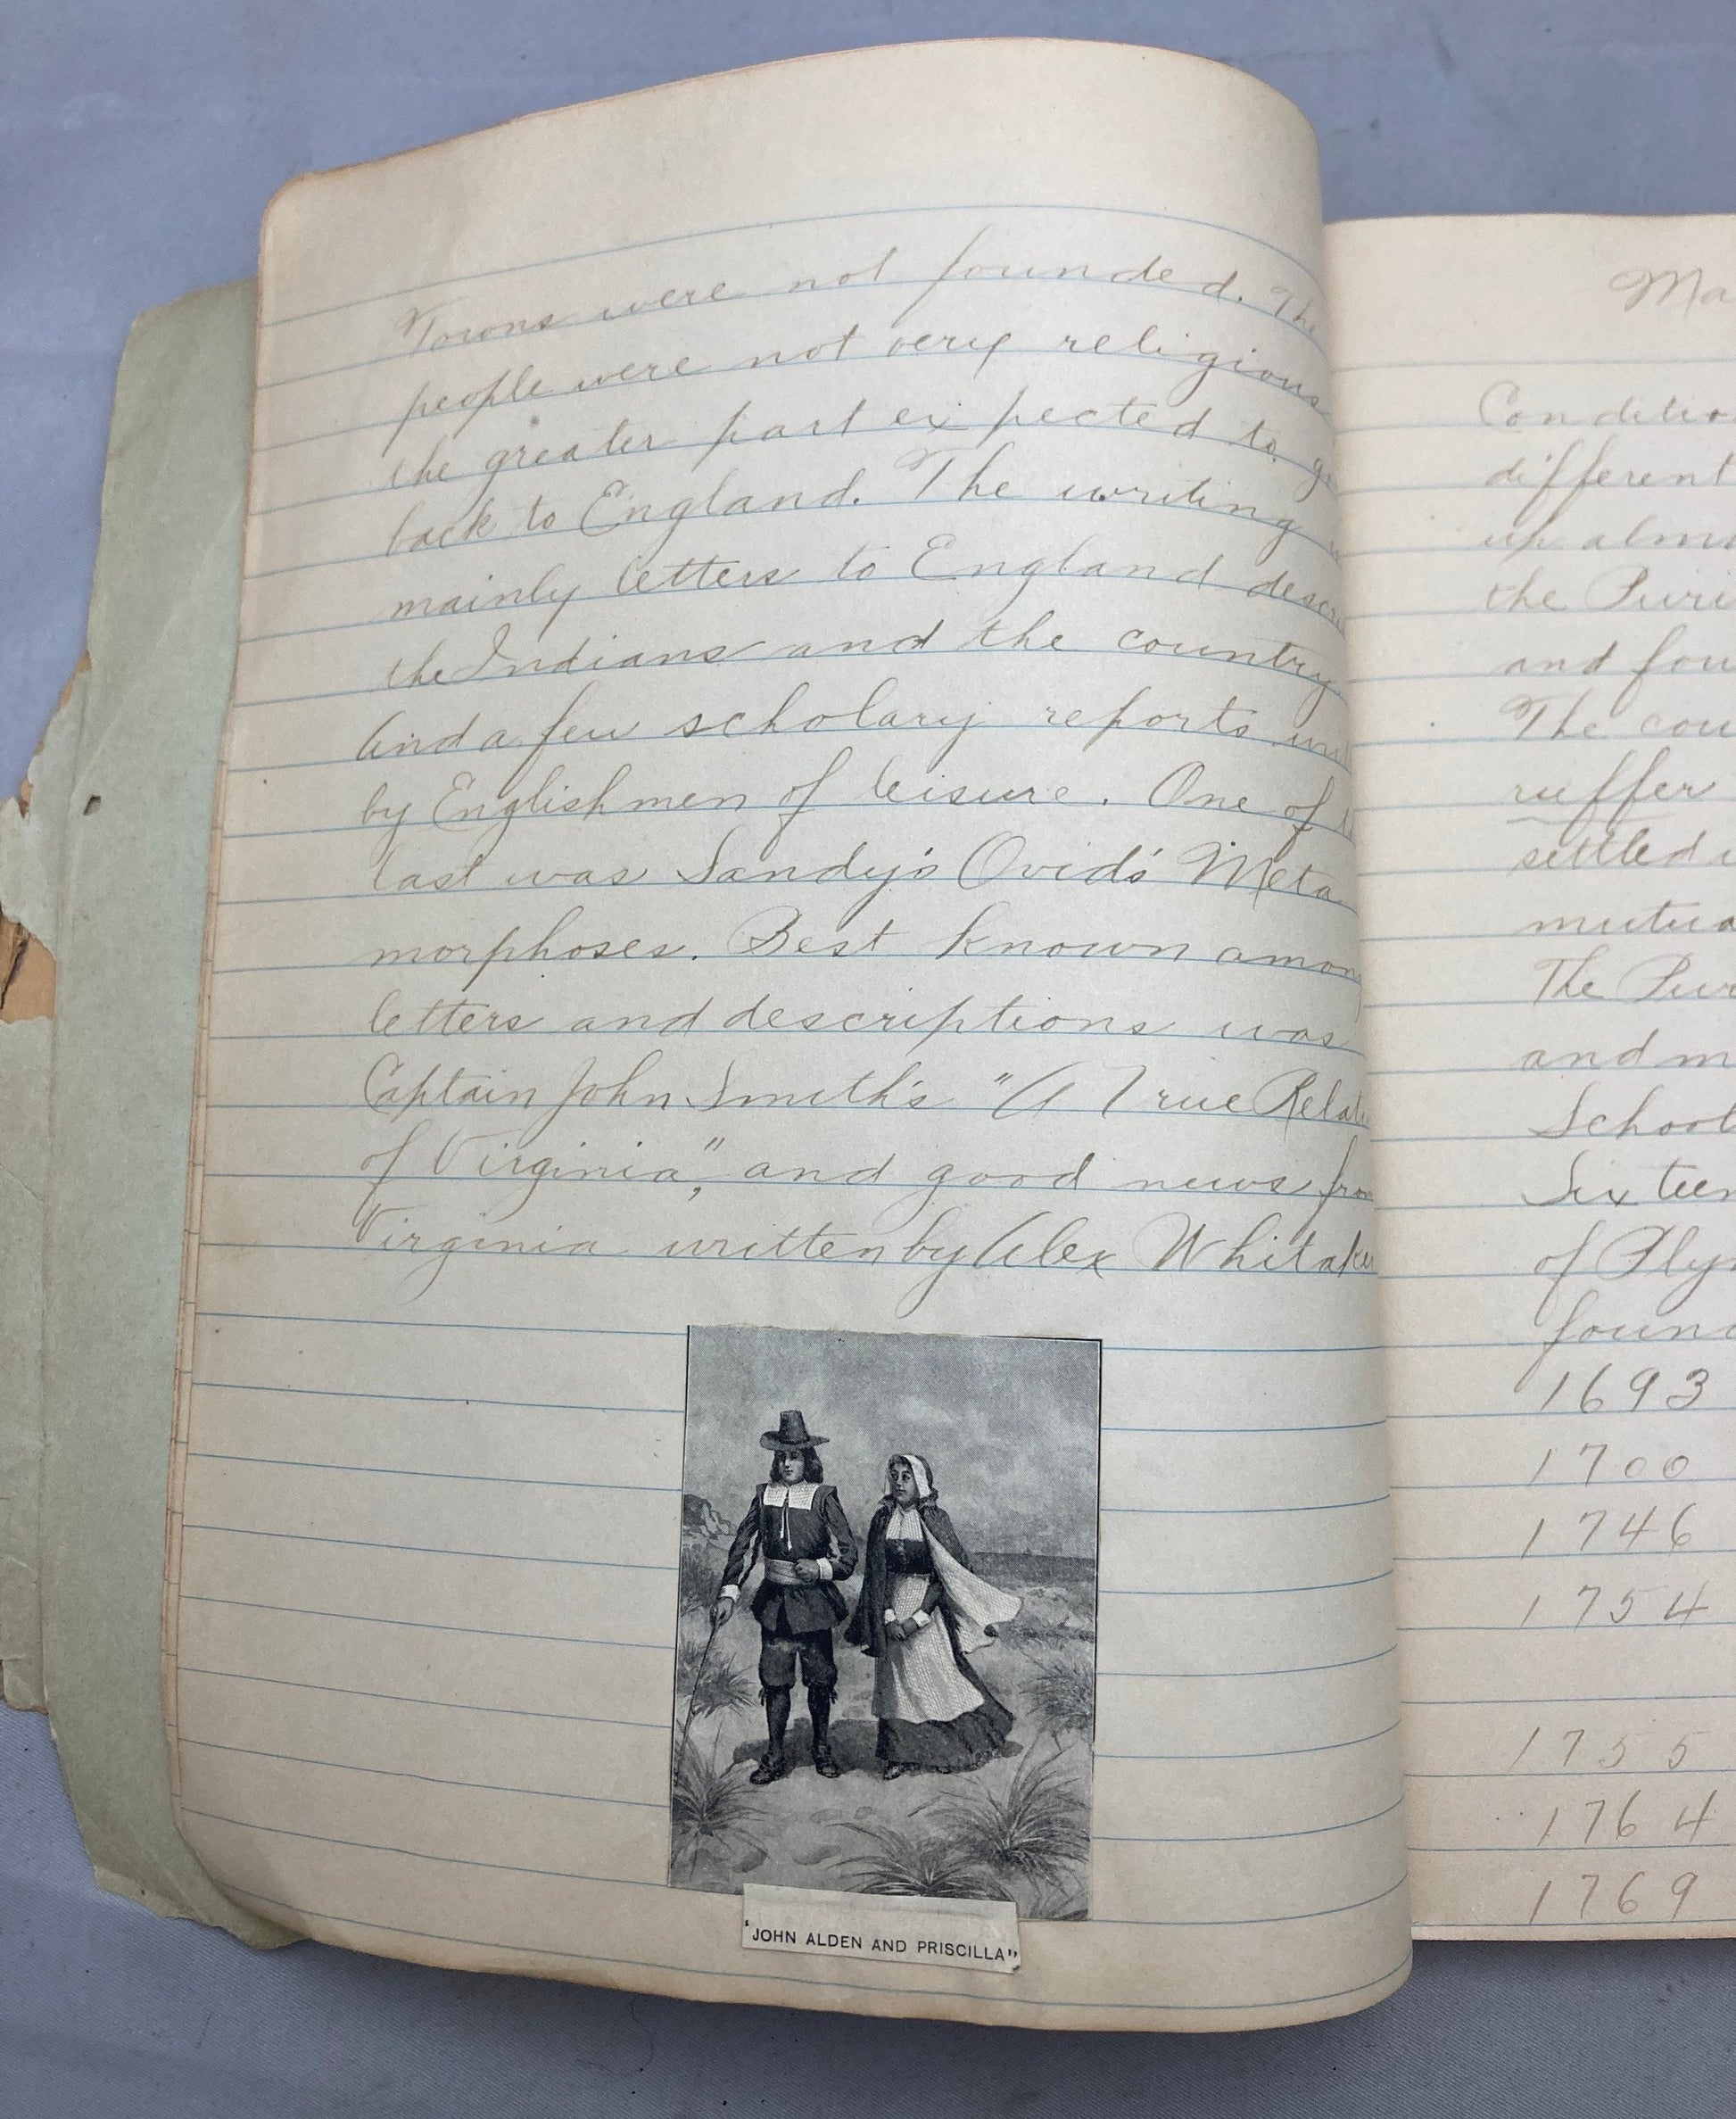 Towns were not founded. The
people were not very religious
the greater part expected to go
back to England. The writing
mainly letters to England descr
the Indians and the country
And a few scholary reports
by Englishmen of leisure. One of
last was Sandy's Ovid's Meta
morphoses. Best known among
letters and descriptions was
Captain John Smith's "A True Relati
of Virginia", and good news from
Virginia written by Alex Whitaker
"JOHN ALDEN AND PRISCILLA"
Ma
Conditio
different
up almo
the Puri
and fou
The cou
ruffer
settled
mutua
The Pur
and m
School
Sixteen
of Plym
foun
1693
1700
1746
1754
1755
1764
1769